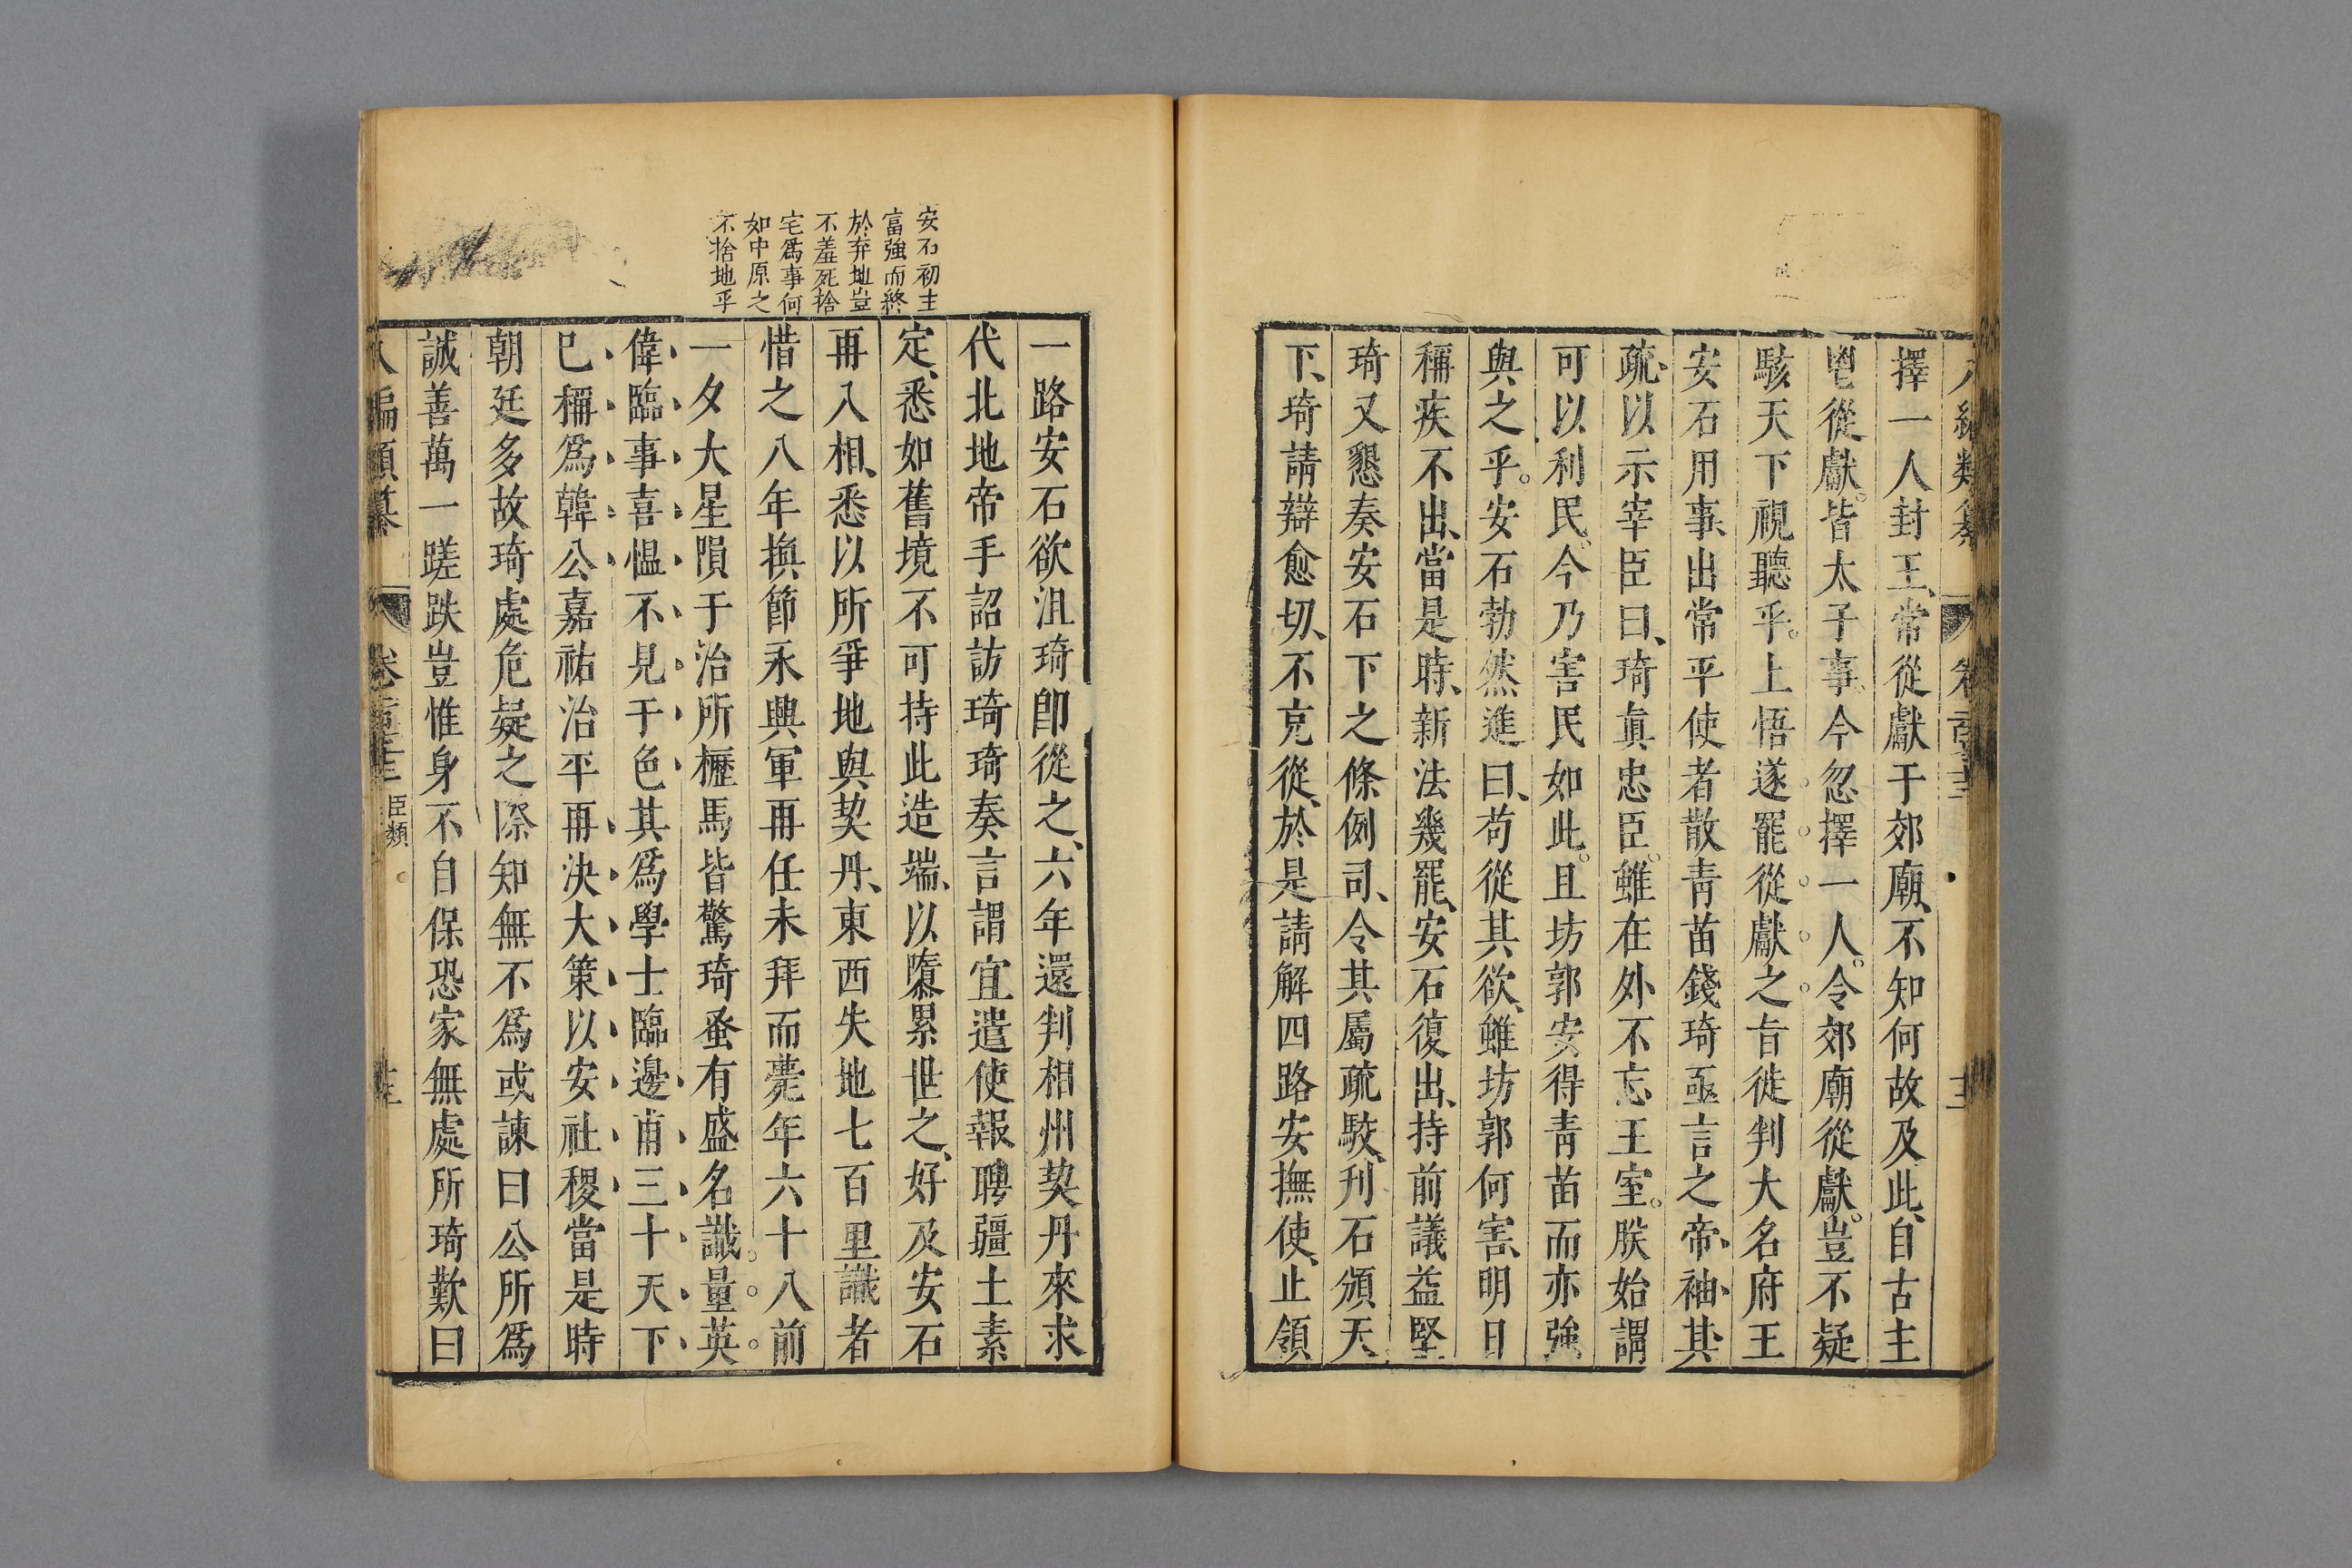 擇一人封王、常從獻于郊廟、不知何故及此、自古主
鬯從獻。皆太子事。今忽擇一人。令郊廟從獻。豈不疑
駭天下視聽乎。上悟遂罷從獻之旨徙判大名府王
安石用事、出常平使者散青苗錢琦亟言之帝、袖其
疏、以示宰臣曰、琦真忠臣。雖在外、不忘王室。朕始謂
可以利民。今乃害民如此。且坊郭安得青苗而亦強
與之乎。安石勃然進曰、苟從其欲、雖坊郭何害、明日
稱疾不出、當是時、新法幾罷、安石復出、持前議益堅
琦又懇奏安石下之條例司、令其屬疏駮、刋石頒天
下、琦請辯愈切、不克從、於是請解四路安撫使、止領
安石初主
富強而終
於弃地豈
不羞死捨
宅爲事何
如中原之
不捨地乎
一路安石欲沮琦卽從之、六年還判相州契丹來求
代北地帝手詔訪琦琦奏言謂宜遣使報聘疆土素
定、悉如舊境不可持此造端、以隳累世之、好及安石
再入相、悉以所爭地與契丹、東西失地七百里識者
惜之八年換節永興軍再任未拜而薨年六十八前
一夕大星隕于治所櫪馬皆驚琦蚤有盛名識量英
偉臨事喜慍不見于色其爲學士臨邊甫三十天下
已稱爲韓公嘉祐治平再決大策以安社稷當是時
朝廷多故琦處危疑之際知無不爲或諫曰公所爲
誠善萬一蹉跌豈惟身不自保恐家無處所琦歎曰
八編類纂 卷 臣類